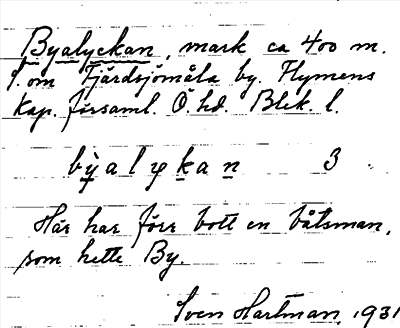 Byalyckan, mark ca 400 m.
S. om Fjärdsjömåla by. Flymens
Kap. församl. Ö. hd. Blek. l.
byalykan 3
Här har förr bott en båtsman,
som hette By.
Sven Hartman, 1931